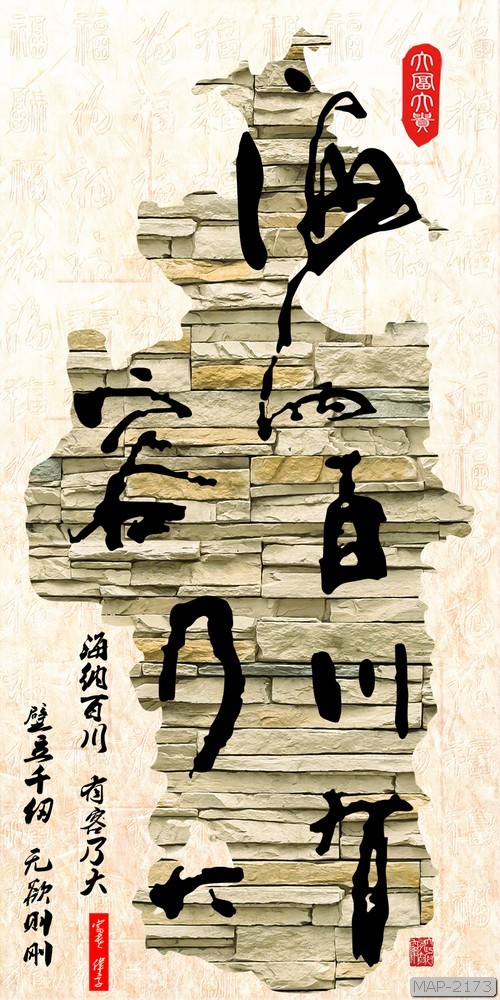 大富大贵
海纳百川有
容乃大
海纳百川 有容乃大
壁立千仞 无欲则刚
MAP-2173